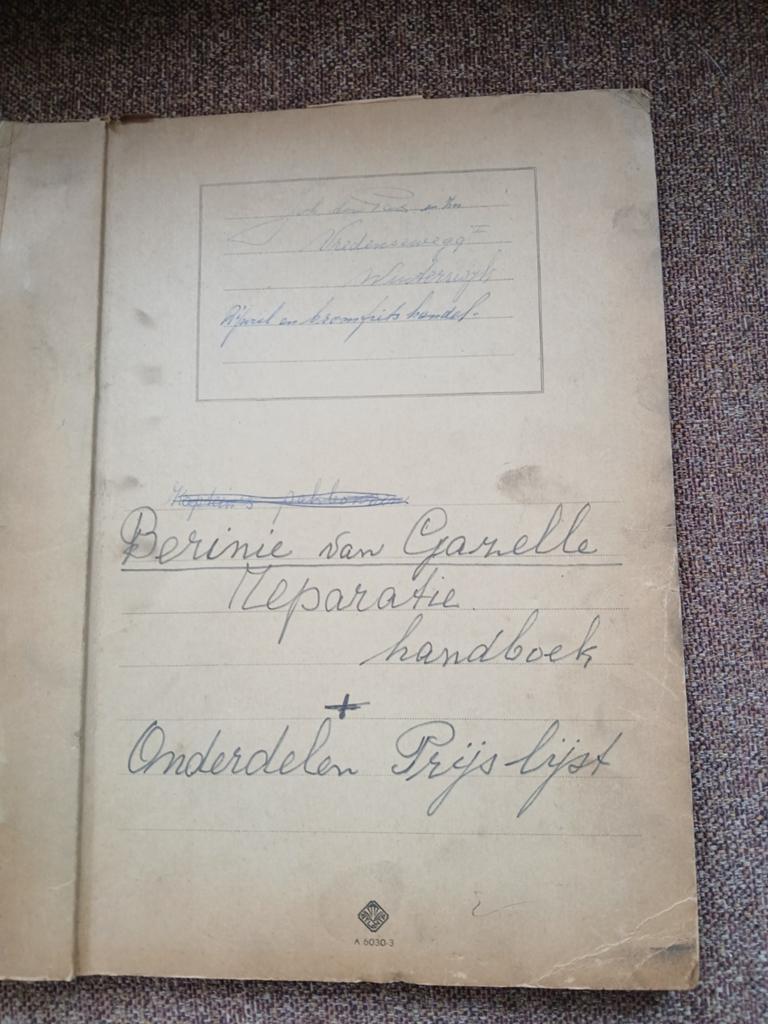 en Zn
Vredenseweg
Winterswijk
Rijwiel en bromfiets handel.
Berinie van Gazelle
Reparatie
handboek
+
Onderdelen Prijs lijst
A 6030-3